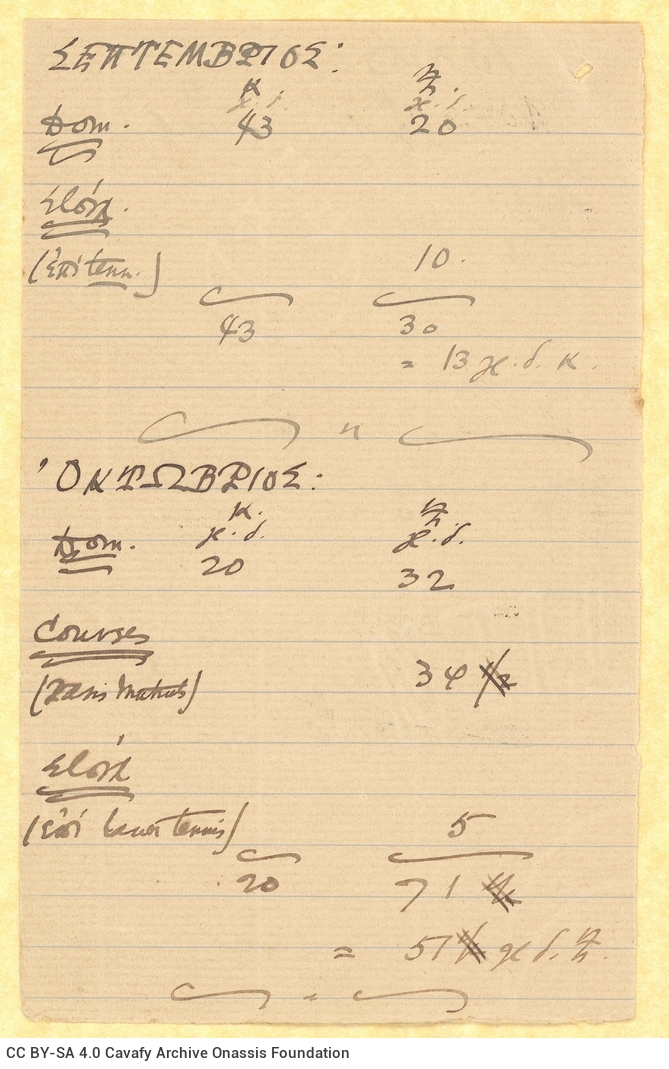 ΣΕΠΤΕΜΒΡΙΟΣ:
Κ. Ζ.
Dom. 43 20
Στοίχ.
(ἐπὶ tenn.) 10.
43 30
= 13 χ.δ. Κ.
"
ὈΚΤΩΒΡΙΟΣ:
Κ. Ζ.
χ.δ. χ.δ.
Dom. 20 32
Courses
34
Στοίχ
(ἐπὶ Lawn tennis) 5
20 71
= 51 χ δ. Ζ.
CC BY-SA 4.0 Cavafy Archive Onassis Foundation